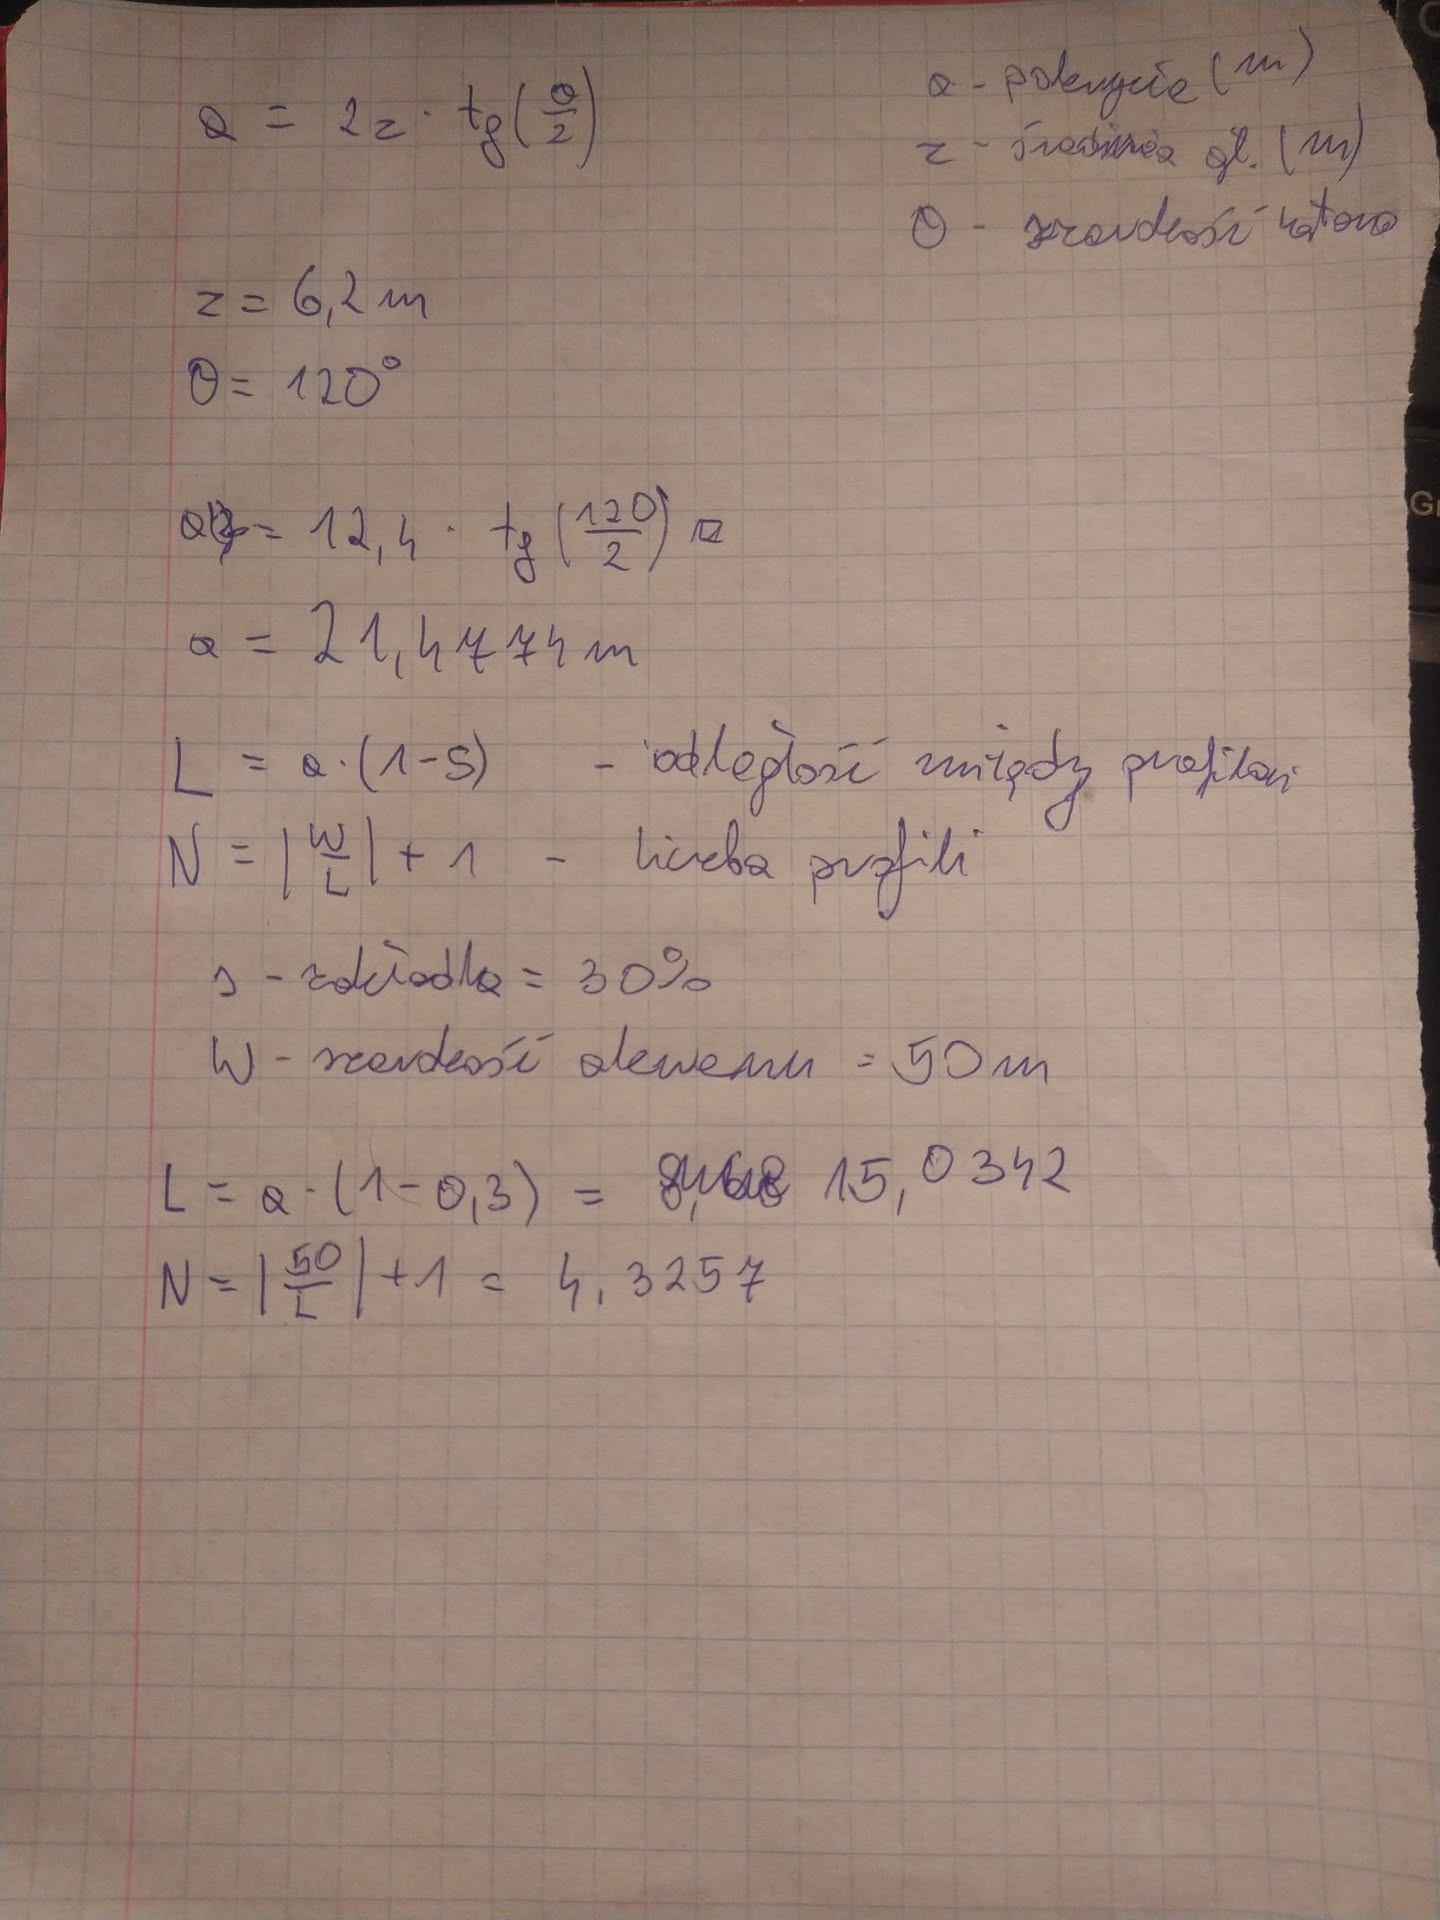 a = 2z · tg(θ/2)
a - pokrycie (m)
z - średnia gł. (m)
θ - szerokość kątowa
z = 6,2 m
θ = 120°
a = 12,4 · tg(120/2)
a = 21,4774 m
L = a·(1-S) - odległość między profilami
N = |W/L| + 1 - liczba profili
s - zakładka = 30%
W - szerokość akwenu = 50 m
L = a·(1-0,3) = 15,0342
N = |50/L| + 1 = 4,3257